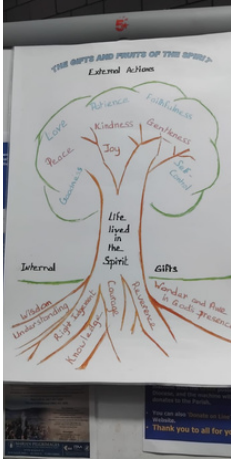 THE GIFTS AND FRUITS OF THE SPIRIT
External Actions
Patience
Faithfulness
Love
Kindness
Gentleness
Peace
Joy
Self-
Control
Goodness
Life
lived
in
the
Spirit
Internal
Gifts
Wisdom
Understanding
Right Judgement
Knowledge
Courage
Reverence
Wonder and Awe
in God's presence
Website.
Thank you to all for y